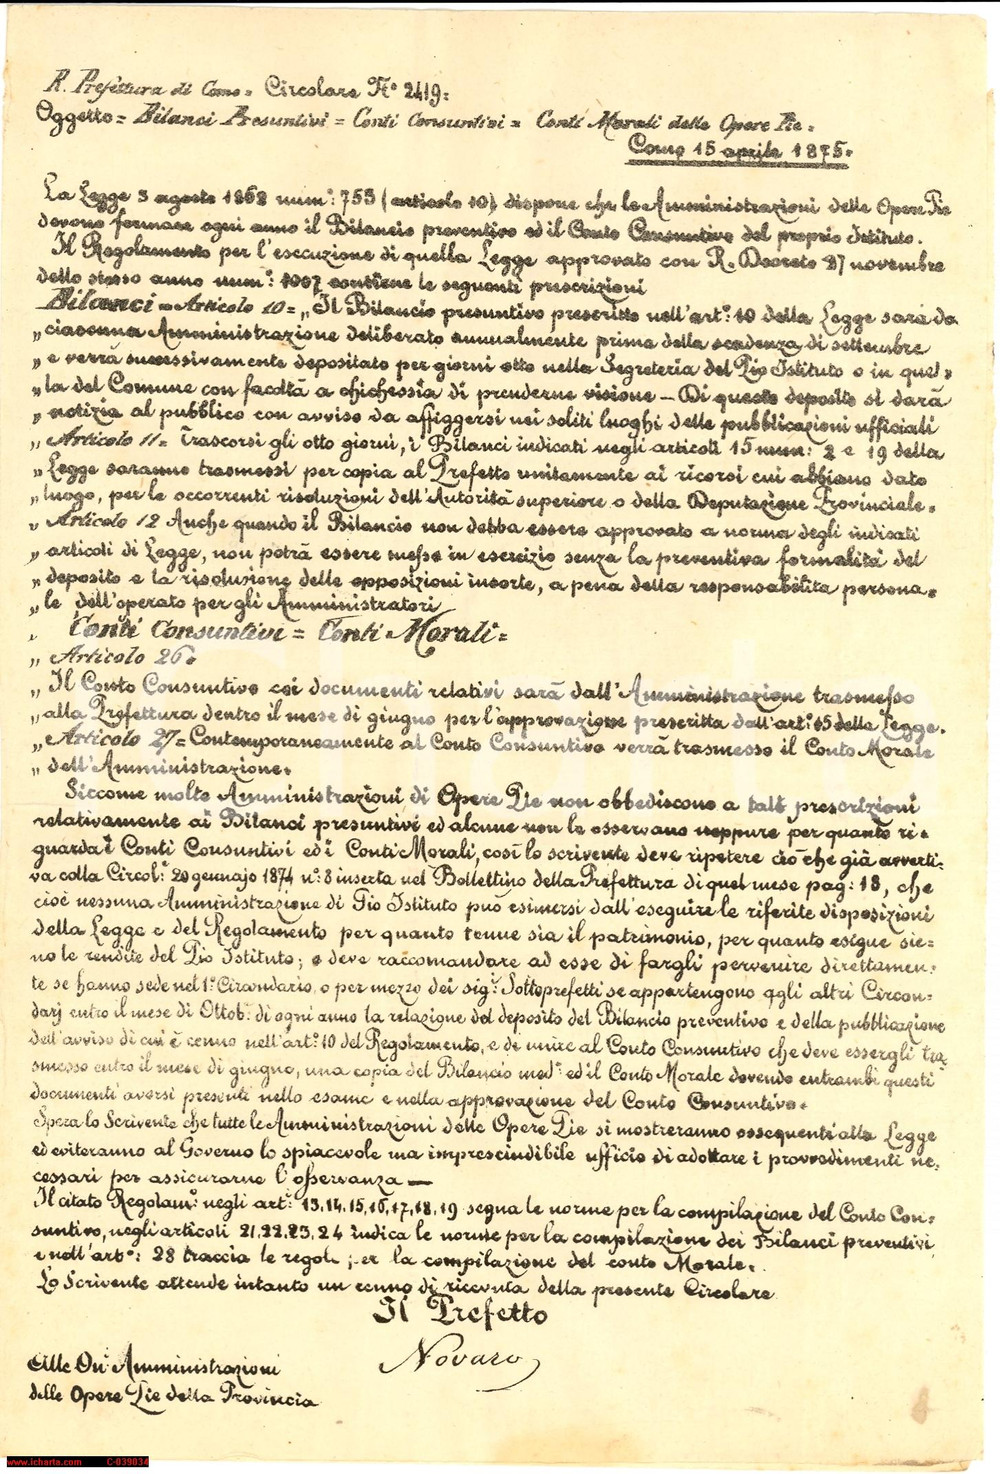 R. Prefettura di Como = Circolare N° 2419 =
Oggetto = Bilanci Presuntivi = Conti Consuntivi = Conti Morali delle Opere Pie =
Como 15 aprile 1875 =
La Legge 3 agosto 1862 num°: 753 (articolo 10) dispone che le Amministrazioni delle Opere Pie
devono formare ogni anno il Bilancio preventivo ed il Conto Consuntivo del proprio Istituto.
Il Regolamento per l'esecuzione di quella Legge approvato con R. Decreto 27 novembre
dello stesso anno num°: 1007 contiene le seguenti prescrizioni
Bilanci = Articolo 10 = „ Il Bilancio presuntivo prescritto nell'art°: 10 della Legge sarà da
„ ciascuna Amministrazione deliberato annualmente prima della scadenza di settembre
„ e verrà successivamente depositato per giorni otto nella Segreteria del Pio Istituto o in quel=
„ la del Comune con facoltà a chichessia di prenderne visione — Di questo deposito si darà
„ notizia al pubblico con avviso da affiggersi nei soliti luoghi delle pubblicazioni ufficiali
„ Articolo 11 = Trascorsi gli otto giorni, i Bilanci indicati negli articoli 15 num: 2 e 19 della
„ Legge saranno trasmessi per copia al Prefetto unitamente ai ricorsi cui abbiano dato
„ luogo, per le occorrenti risoluzioni dell'Autorità superiore o della Deputazione Provinciale =
„ Articolo 12 Anche quando il Bilancio non debba essere approvato a norma degli indicati
„ articoli di Legge, non potrà essere messo in esercizio senza la preventiva formalità del
„ deposito e la risoluzione delle opposizioni insorte, a pena della responsabilità persona=
„ le dell'operato per gli Amministratori
„ Conti Consuntivi = Conti Morali =
„ Articolo 26 =
„ Il Conto Consuntivo coi documenti relativi sarà dall'Amministrazione trasmesso
„ alla Prefettura dentro il mese di giugno per l'approvazione prescritta dall'art°: 15 della Legge.
„ Articolo 27 = Contemporaneamente al Conto Consuntivo verrà trasmesso il Conto Morale
„ dell'Amministrazione =
Siccome molte Amministrazioni di Opere Pie non obbediscono a tali prescrizioni
relativamente ai Bilanci presuntivi ed alcune non le osservano neppure per quanto ri=
guarda i Conti Consuntivi ed i Conti Morali, così lo scrivente deve ripetere ciò che già avverti=
va colla Circol°: 20 gennajo 1874 n°: 8 inserta nel Bollettino della Prefettura di quel mese pag: 18, che
cioè nessuna Amministrazione di Pio Istituto può esimersi dall'eseguire le riferite disposizioni
della Legge e del Regolamento per quanto tenue sia il patrimonio, per quanto esigue sie=
no le rendite del Pio Istituto; e deve raccomandare ad esse di fargli pervenire direttamen=
te se hanno sede nel 1° Circondario, o per mezzo dei sig°: Sottoprefetti se appartengono agli altri Circon=
darj entro il mese di Ottob: di ogni anno la relazione del deposito del Bilancio preventivo e della pubblicazione
dell'avviso di cui è cenno nell'art°: 10 del Regolamento, e di unire al Conto Consuntivo che deve essergli tra=
smesso entro il mese di giugno, una copia del Bilancio med° ed il Conto Morale dovendo entrambi questi
documenti aversi presenti nello esame e nella approvazione del Conto Consuntivo =
Spera lo Scrivente che tutte le Amministrazioni delle Opere Pie si mostreranno ossequenti alla Legge
ed eviteranno al Governo lo spiacevole ma imprescindibile ufficio di adottare i provvedimenti ne=
cessari per assicurarne l'osservanza —
Il citato Regolam: negli art°: 13,14,15,16,17,18,19 segna le norme per la compilazione del Conto Con=
suntivo, negli articoli 21,22,23,24 indica le norme per la compilazione dei Bilanci preventivi,
e nell'art°: 28 traccia le regole per la compilazione del conto Morale.
Lo Scrivente attende intanto un cenno di ricevuta della presente Circolare
Il Prefetto
Novaro
Alle On: Amministrazioni
delle Opere Pie della Provincia
www.icharta.com C-039034